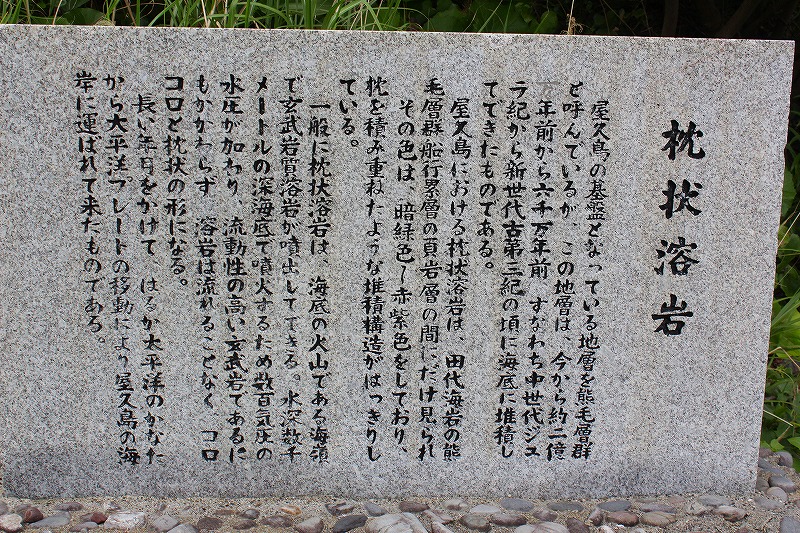 枕状溶岩
屋久島の基盤となっている地層を熊毛層群
と呼んでいるが、この地層は、今から約二億
万年前から六千万年前 すなわち中世代ジュ
ラ紀から新世代古第三紀の頃に海底に堆積し
てできたものである。
屋久島における枕状溶岩は、田代海岩の熊
毛層群船行累層の頁岩層の間にだけ見られ
その色は、暗緑色〜赤紫色をしており、
枕を積み重ねたような堆積構造がはっきりし
ている。
一般に枕状溶岩は、海底の火山である海嶺
で玄武岩質溶岩が噴出してできる。水深数千
メートルの深海底で噴火するため数百気圧の
水圧が加わり、流動性の高い玄武岩であるに
もかかわらず 溶岩は流れることなく コロ
コロと枕状の形になる。
長い年月をかけて はるか太平洋のかなた
から太平洋プレートの移動により屋久島の海
岸に運ばれて来たものである。